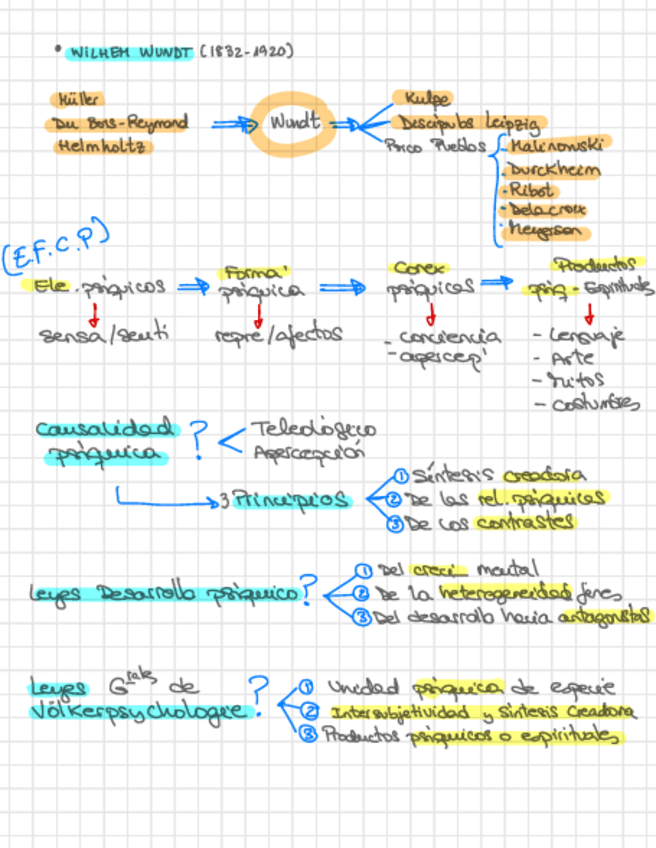 • WILHEM WUNDT (1832-1920)
Müller
Du Bois-Reymond
Helmholtz
Wundt
Kulpe
Discípulos Leipzig
Psico Pueblos
- Malinowski
- Durckheim
- Ribot
- Delacroix
- Meyerson
(E.F.C.P)
Ele. psíquicos
Forma'
psíquica
Conex
psíquicas
Productos
psiq - Espirituales
sensa/senti
repre/afectos
- conciencia
- apercep'
- Lenguaje
- Arte
- Mitos
- Costumbres
Causalidad
psíquica
?
Teleológico
Apercepción
3 Principios
① Síntesis creadora
② De las rel. psíquicas
③ De los contrastes
Leyes Desarrollo psíquico?
① Del creci mental
② De la heterogeneidad fenes
③ Del desarrollo hacia antagonistas
Leyes Grales de
Völkerpsychologie?
① Unidad psíquica de especie
② Intersubjetividad y síntesis Creadora
③ Productos psíquicos o espirituales